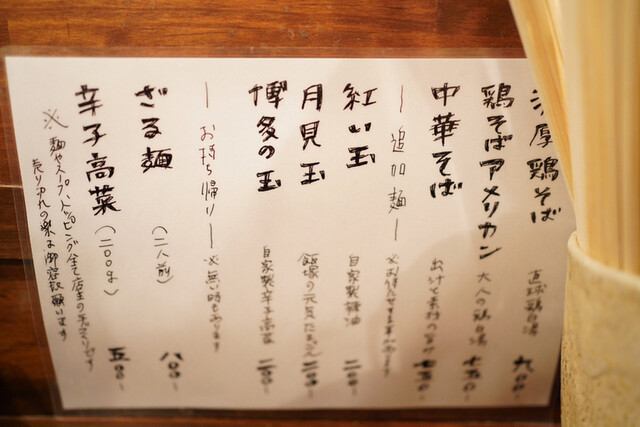 濃厚鶏そば 直球鶏白湯 九〇〇-
鶏そばアメリカン 大人の鶏白湯 七五〇-
中華そば 出汁と素材の 七五〇-
― 追加麺 ― ※お待たせする事があります
紅い玉 自家製辣油 二〇〇-
月見玉 飯塚の元気たまご 二〇〇-
博多の玉 自家製辛子高菜 二五〇-
― お持ち帰り ― ※無い時もあります
ざる麺 (二人前) 八〇〇-
辛子高菜 (二〇〇g) 五〇〇-
※麺やスープ、トッピング全て店主の手づくりです
売り切れの際は御容赦願います